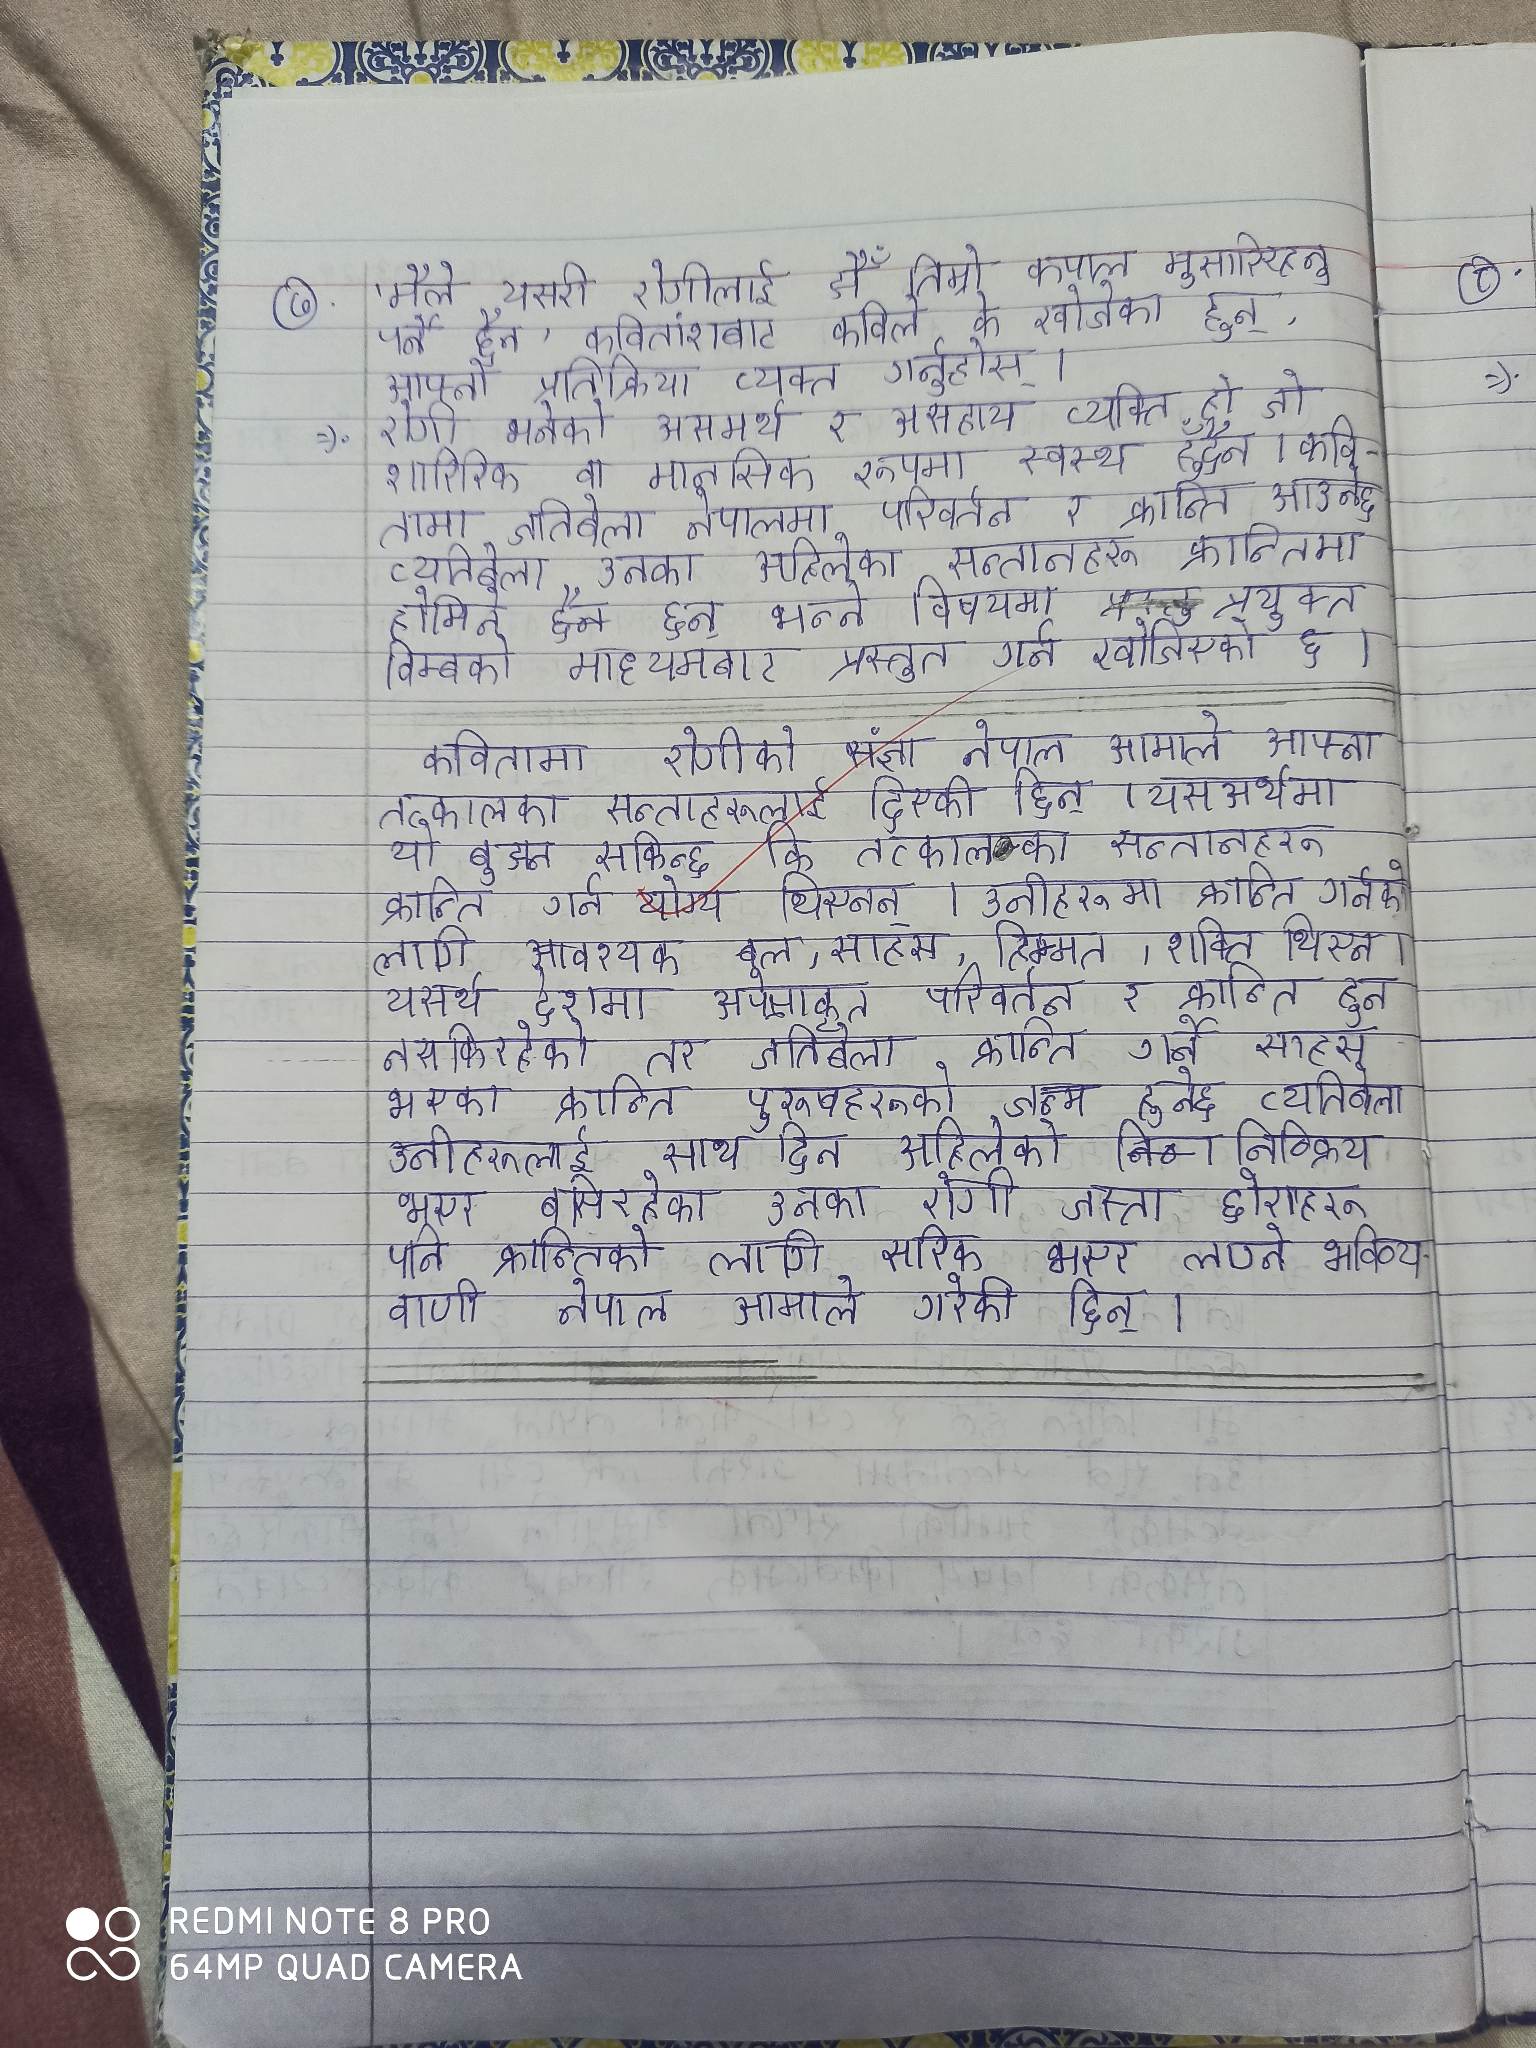 ७. 'मैले यसरी रोगीलाई झैँ तिम्रो कपाल मुसारिरहनु
पर्ने छैन' कवितांशबाट कविले के खोजेका हुन्,
आफ्नो प्रतिक्रिया व्यक्त गर्नुहोस् ।
=>. रोगी भनेको असमर्थ र असहाय व्यक्ति हो जो
शारिरिक वा मानसिक रूपमा स्वस्थ हुँदैन । कवि-
तामा जतिबेला नेपालमा परिवर्तन र क्रान्ति आउनेछ
त्यतिबेला उनका अहिलेका सन्तानहरू क्रान्तिमा
होमिने छैन छन् भन्ने विषयमा प्रयुक्त
विम्बको माध्यमबाट प्रस्तुत गर्न खोजिएको छ ।
कवितामा रोगीको संज्ञा नेपाल आमाले आफ्ना
तत्कालका सन्ताहरूलाई दिएकी छिन् । यसअर्थमा
यो बुझ्न सकिन्छ कि तत्कालका सन्तानहरू
क्रान्ति गर्न योग्य थिएनन् । उनीहरूमा क्रान्ति गर्नको
लागि आवश्यक बल, साहस, हिम्मत, शक्ति थिएन ।
यसर्थ देशमा अपेक्षाकृत परिवर्तन र क्रान्ति हुन
नसकिरहेको तर जतिबेला क्रान्ति गर्ने साहस
भएका क्रान्ति पुरूषहरूको जन्म हुनेछ त्यतिबेला
उनीहरूलाई साथ दिन अहिलेको निष्क्रिय
भएर बसिरहेका उनका रोगी जस्ता छोराहरू
पनि क्रान्तिको लागि सरिक भएर लाग्ने भविष्य-
वाणी नेपाल आमाले गरेकी छिन् ।
८.
=>.
REDMI NOTE 8 PRO
64MP QUAD CAMERA